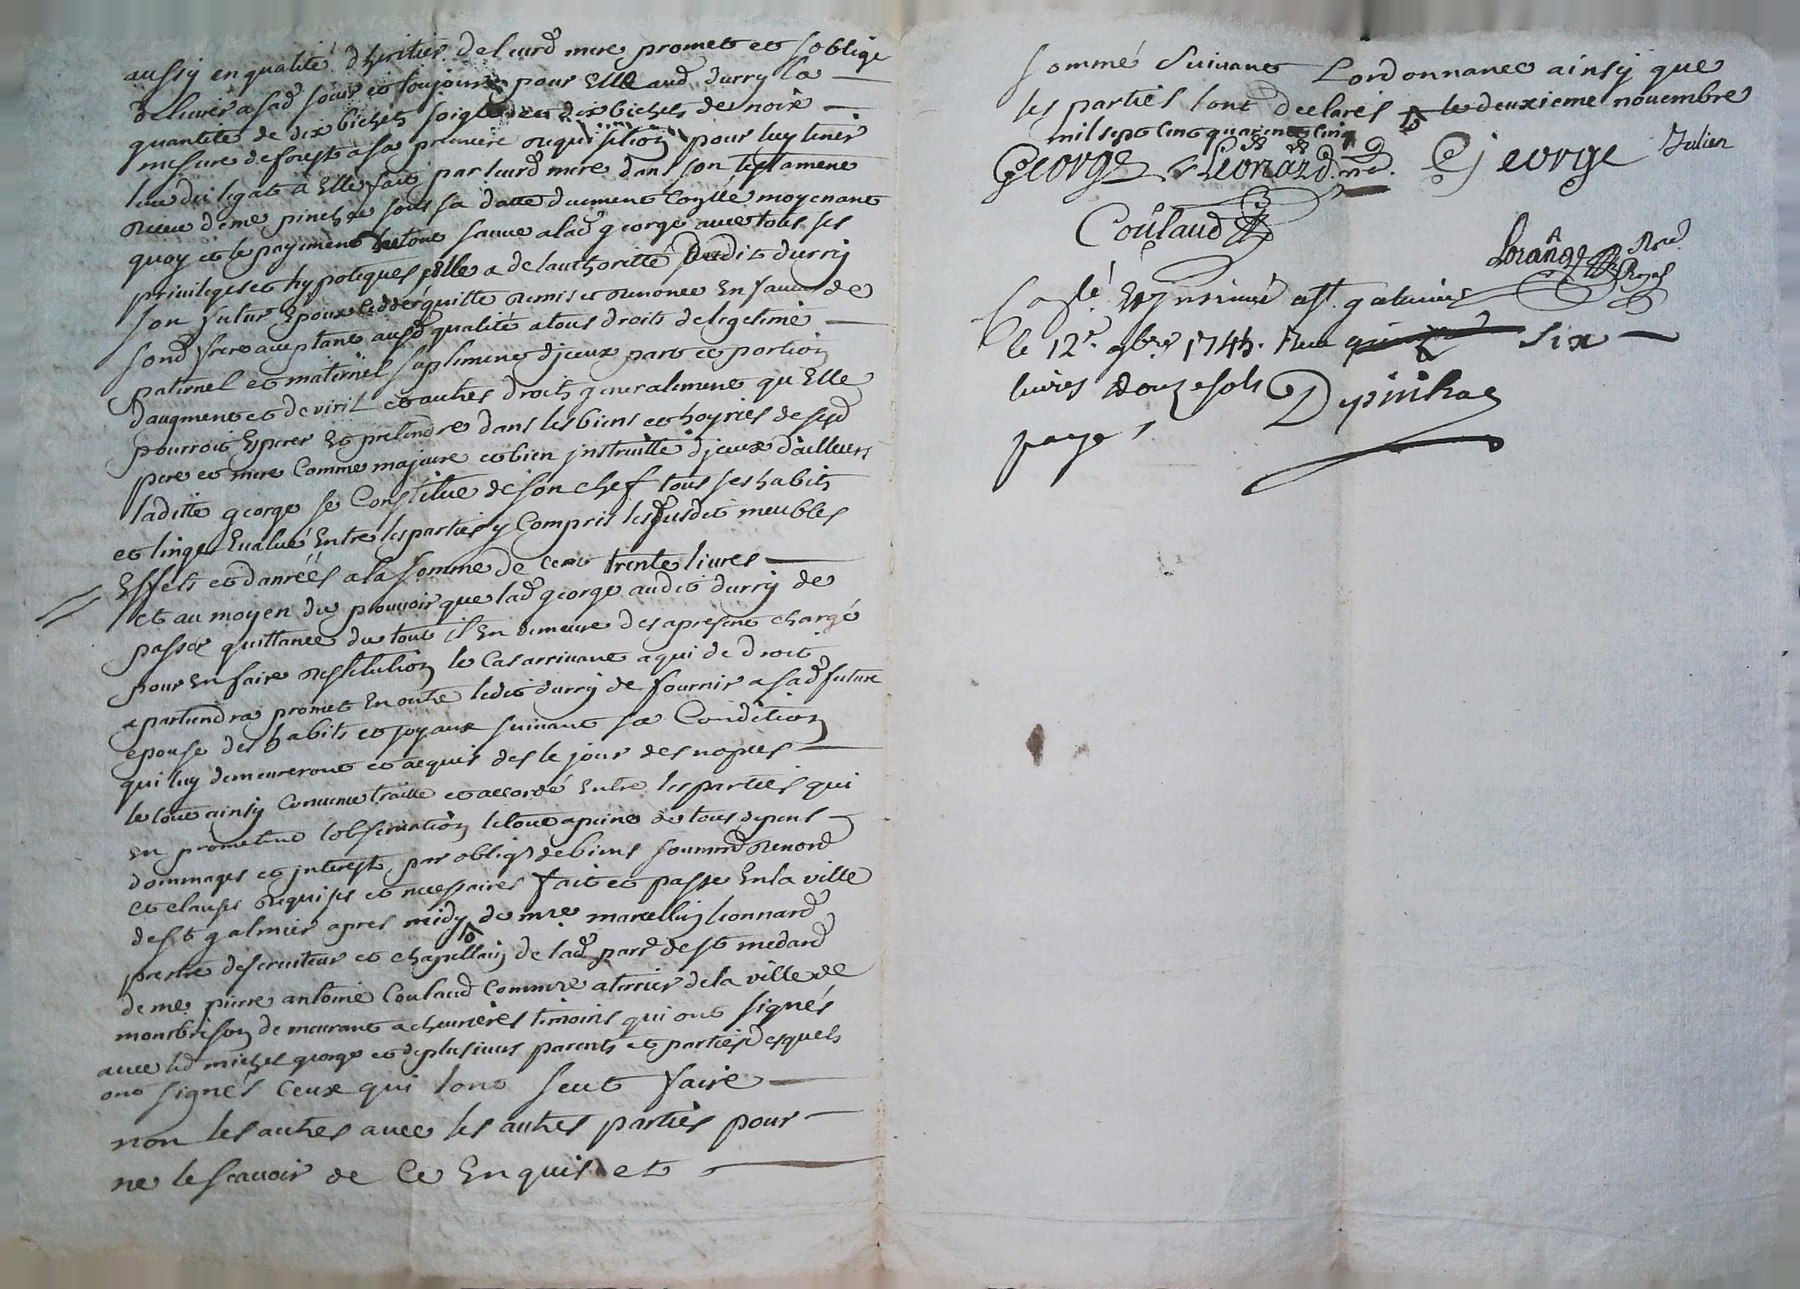 aussy en qualité d'heritier de leurd mere promet et s'oblige
delivrer a sad soeur et toujours pour Elle aud durry la
quantité de dix bichets soigle deux bichets de noix
mesure de forest a sa premiere requisition pour luy tenir
lieu du legat a Elle fait par leurd mere dans son testament
receu de me pinchon sous sa datte duement Conllé moyenant
quoy et le payiment du tout sauve a lad george avec tous ses
privileges et hypoteques Elle a de lauthorité dudit durry
son futur Epoux ceddé quitte remis et renoncé En faveur de
sond frere aceptant ausd qualité a tous droits de legitime
paternel et maternel suplement d'jceux part et portion
d'augment et de viril et autres droits generalement qu'Elle
pourroit Esperer Et pretendre dans les biens et hoyries de sesd
pere et mere Comme majeure et bien jnstruitte d'jceux d'ailleurs
laditte george se Constitue de son chef tous ses habits
et linge Evalué Entre les parties y Compris les susdits meubles
Effets et danréés a la somme de cent trente livres
et au moyen du pouvoir que lad george audit durry de
passer quittance du tout il En demeure des apresent chargé
pour En faire restitution le Cas arrivant a qui de droit
apartiendra promet En outre ledit durry de fournir a sad future
epouse des habits et joyaux suivant sa Condition
qui luy demeureront et acquis des le jour des nopces
le tout ainsy Convenu traitté et accordé Entre les parties qui
En promettent lobservation letout apeine de tous depens
dommages et jnterest par oblig de biens soumis Renond
et clauses requises et necessaires fait et passé En la ville
de st galmier apres midy de mre marcellin Leonnard
prestre desserviteur et chapellain de lad parr de st medard
de me pierre antoine Coulaud Commre a terrier de la ville de
montbrison demeurant a chevrieres temoins qui ont signés
avec led michel george et de plusieurs parents et parties desquels
ont signés Ceux qui lont sceut faire
non les autres avec les autres parties pour
ne le scavoir de Ce Enquis et
sommé Suivant Lordonnance ainsy que
les parties sont declarés le deuxieme novembre
mil sept cent quarente cinq
George Leonard George Julien
Coulaud
Lorange Nore Royal
Conllé Et jnsinué a st galmier
le 12e 9bre 1745. Receu six
livres douze sols Depinhac
payé